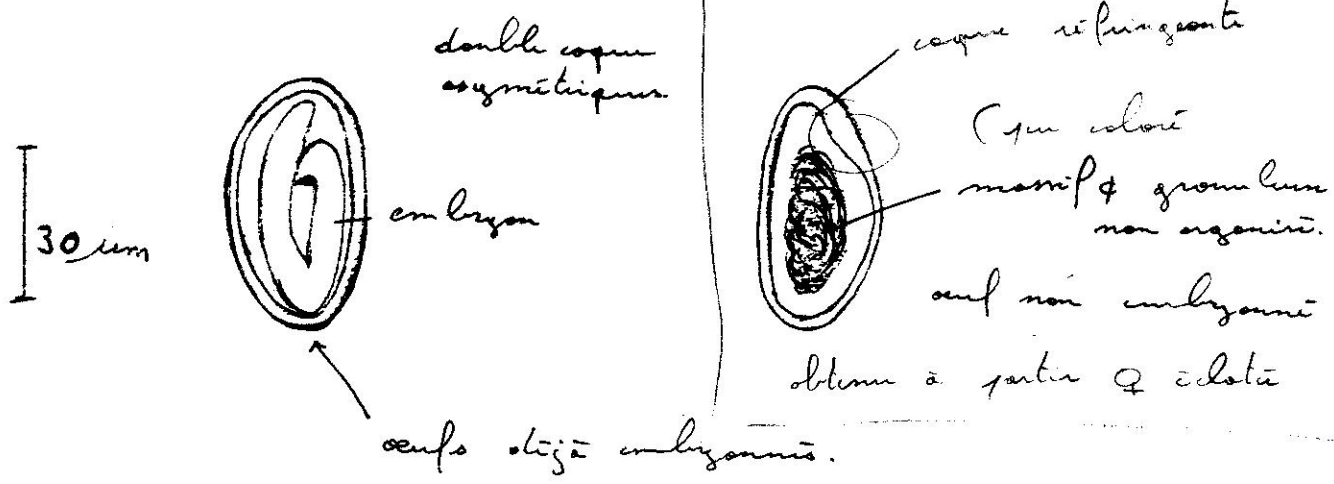 double coque
asymétriques.
embryon
30 µm
oeufs déjà embryonnés.
coque réfringeante
(peu coloré
massif granuleux
non organisé.
oeuf non embryonné
obtenu à partir ♀ éclatée